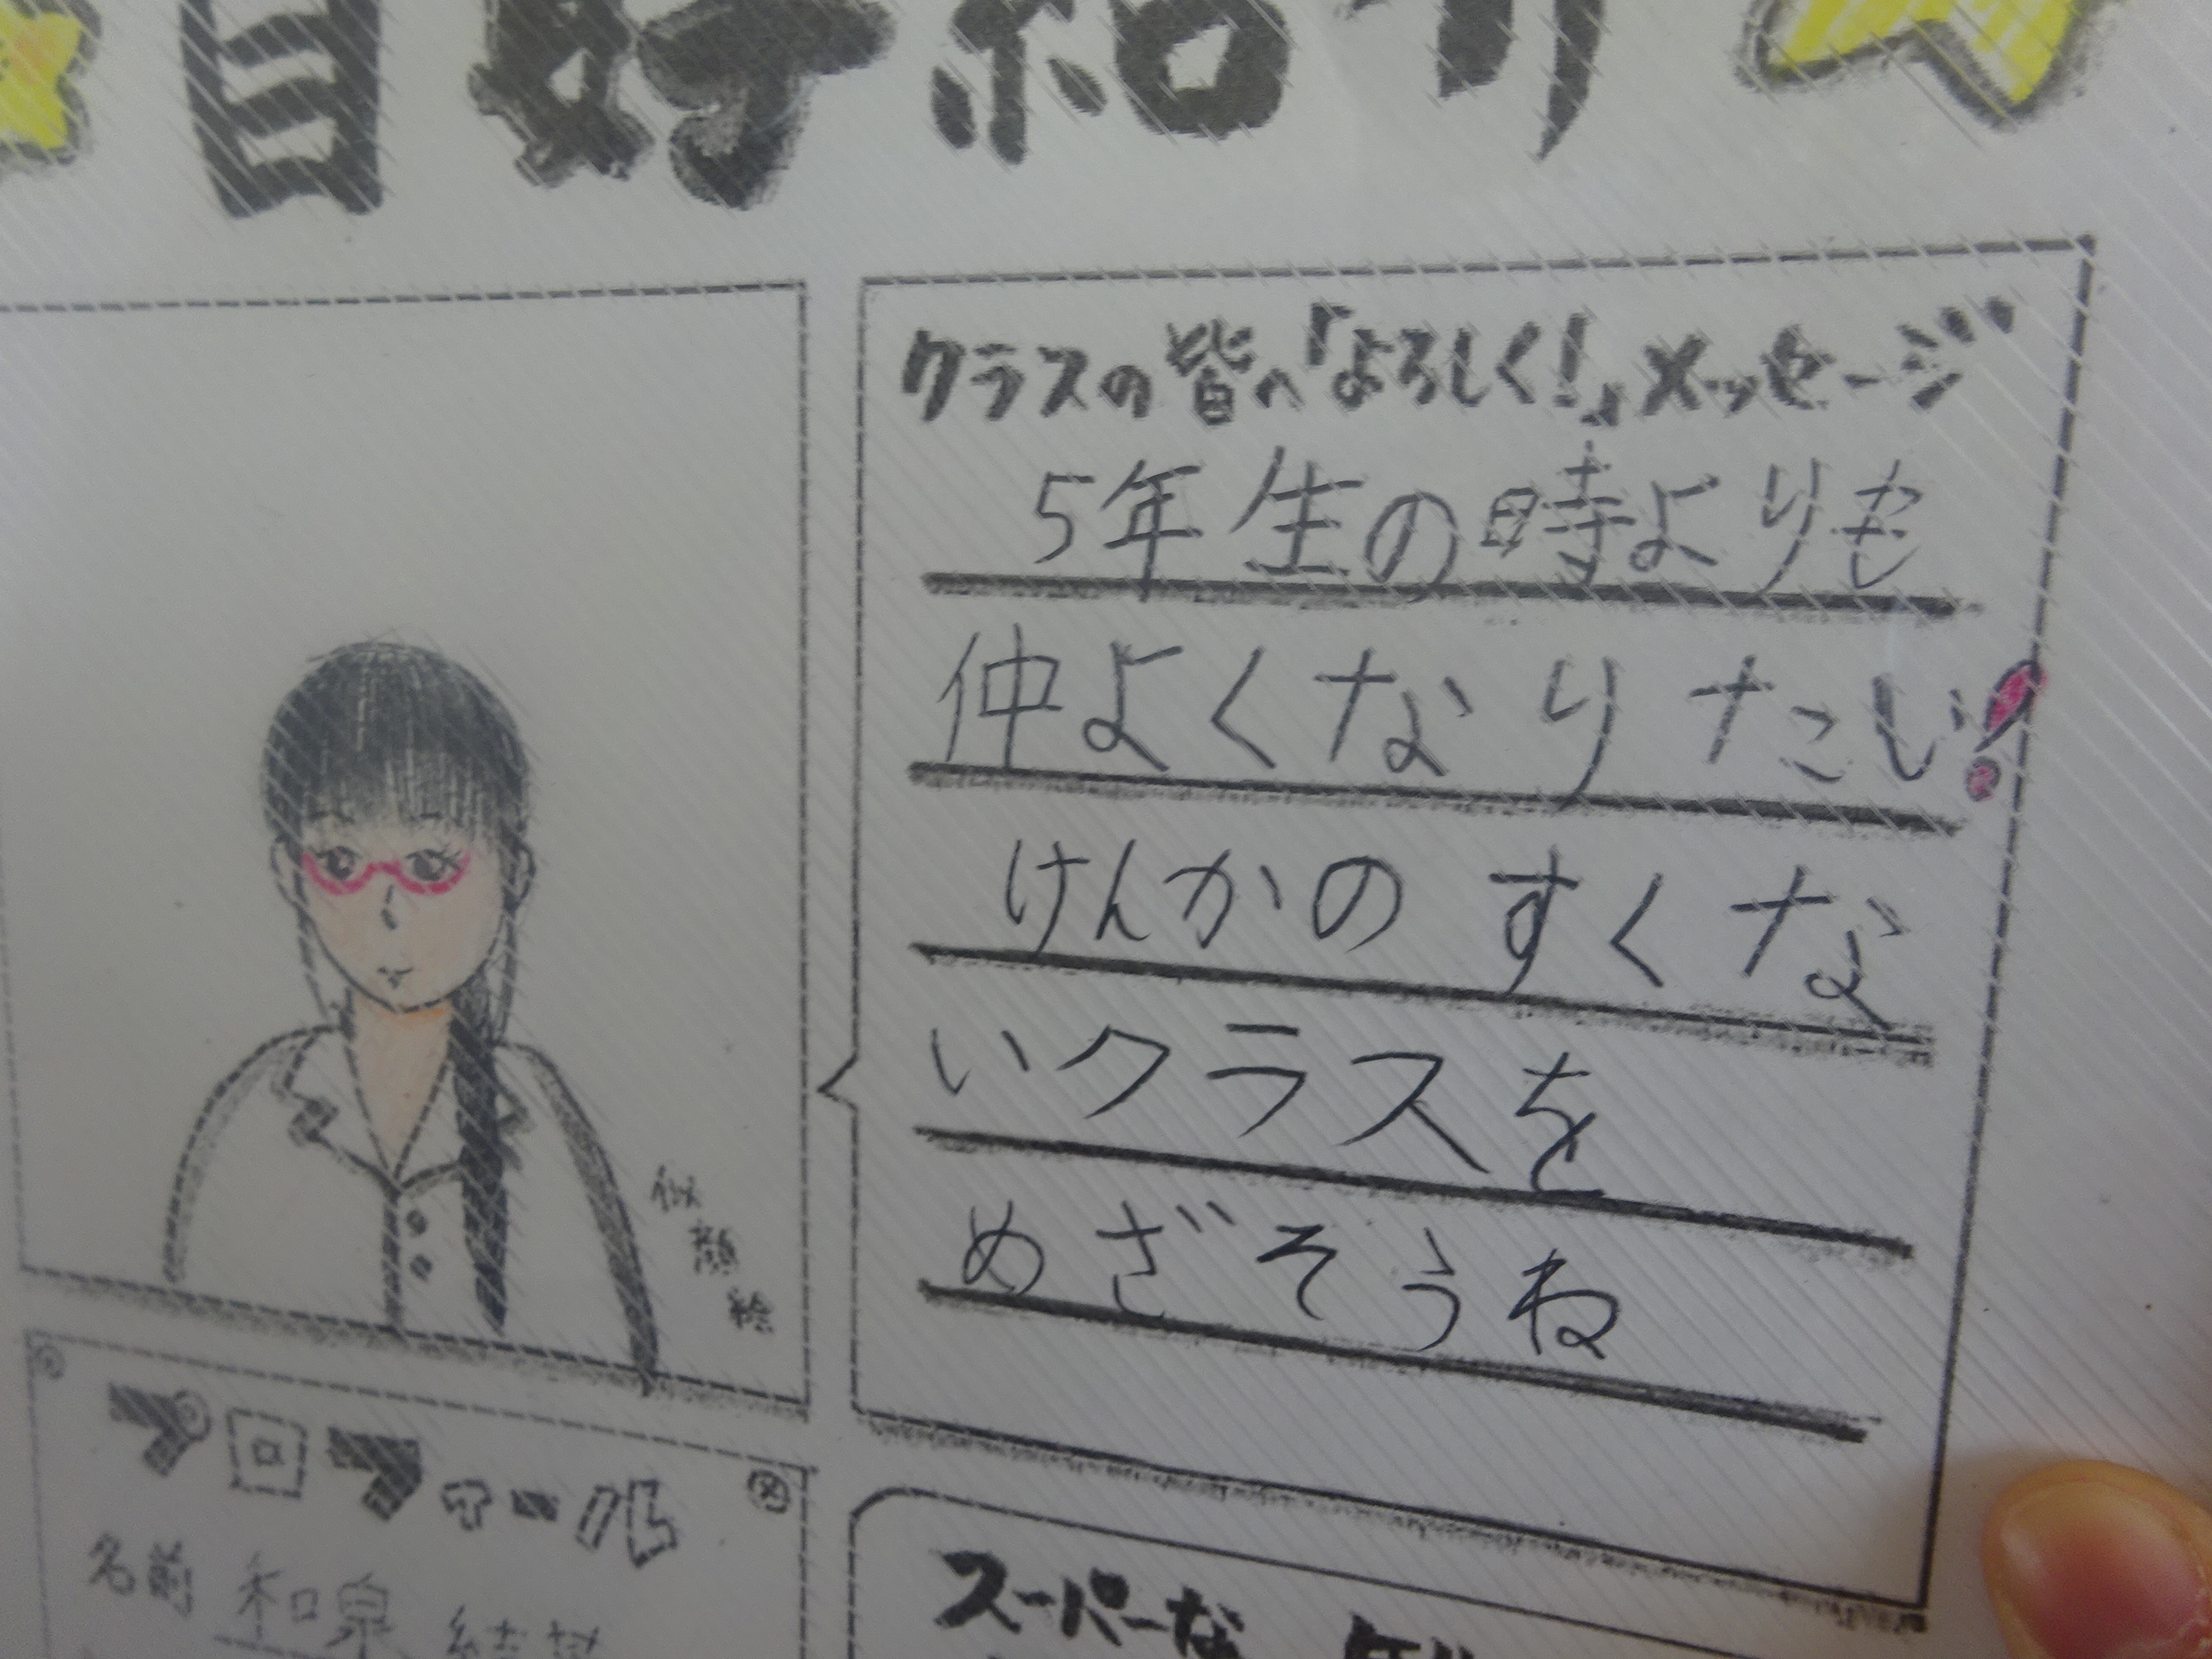 クラスの皆へ「よろしく!」メッセージ
5年生の時よりも
仲よくなりたい!
けんかのすくな
いクラスを
めざそうね
似顔絵
プロフィール
名前 和泉
スーパーな